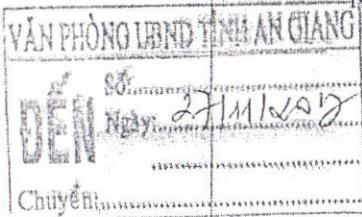 VĂN PHÒNG UBND TỈNH AN GIANG
ĐẾN
Số:
Ngày: 27/11/2017
Chuyển: